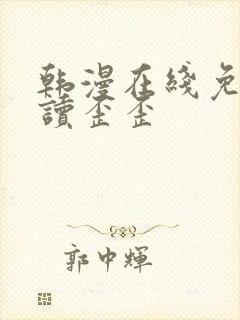 韩漫在线免
讀歪歪
郭中輝